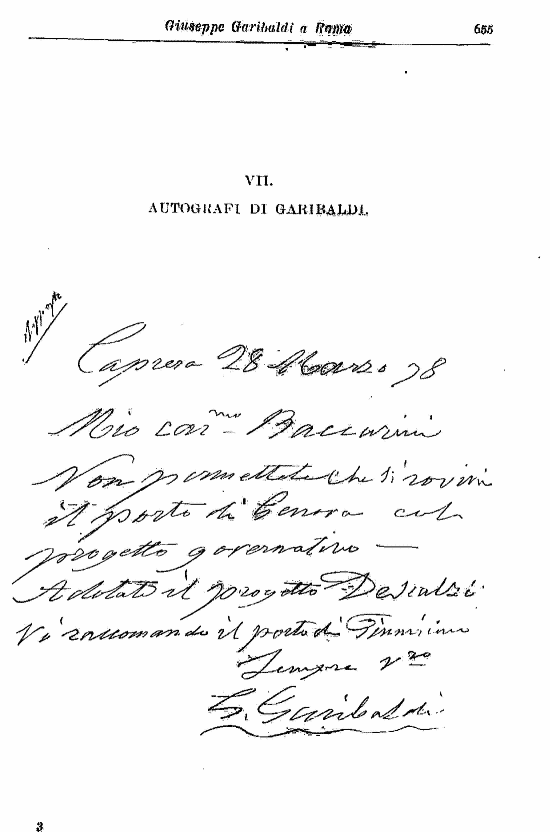 Giuseppe Garibaldi a Roma 655
VII.
AUTOGRAFI DI GARIBALDI.
Caprera 28 Marzo 78
Mio carmo Baccarini
Non permettete che si rovini
il porto di Genova col
progetto governativo —
Adottate il progetto Descalzi
Vi raccomando il porto di Fiumicino
Sempre vro
G. Garibaldi
3